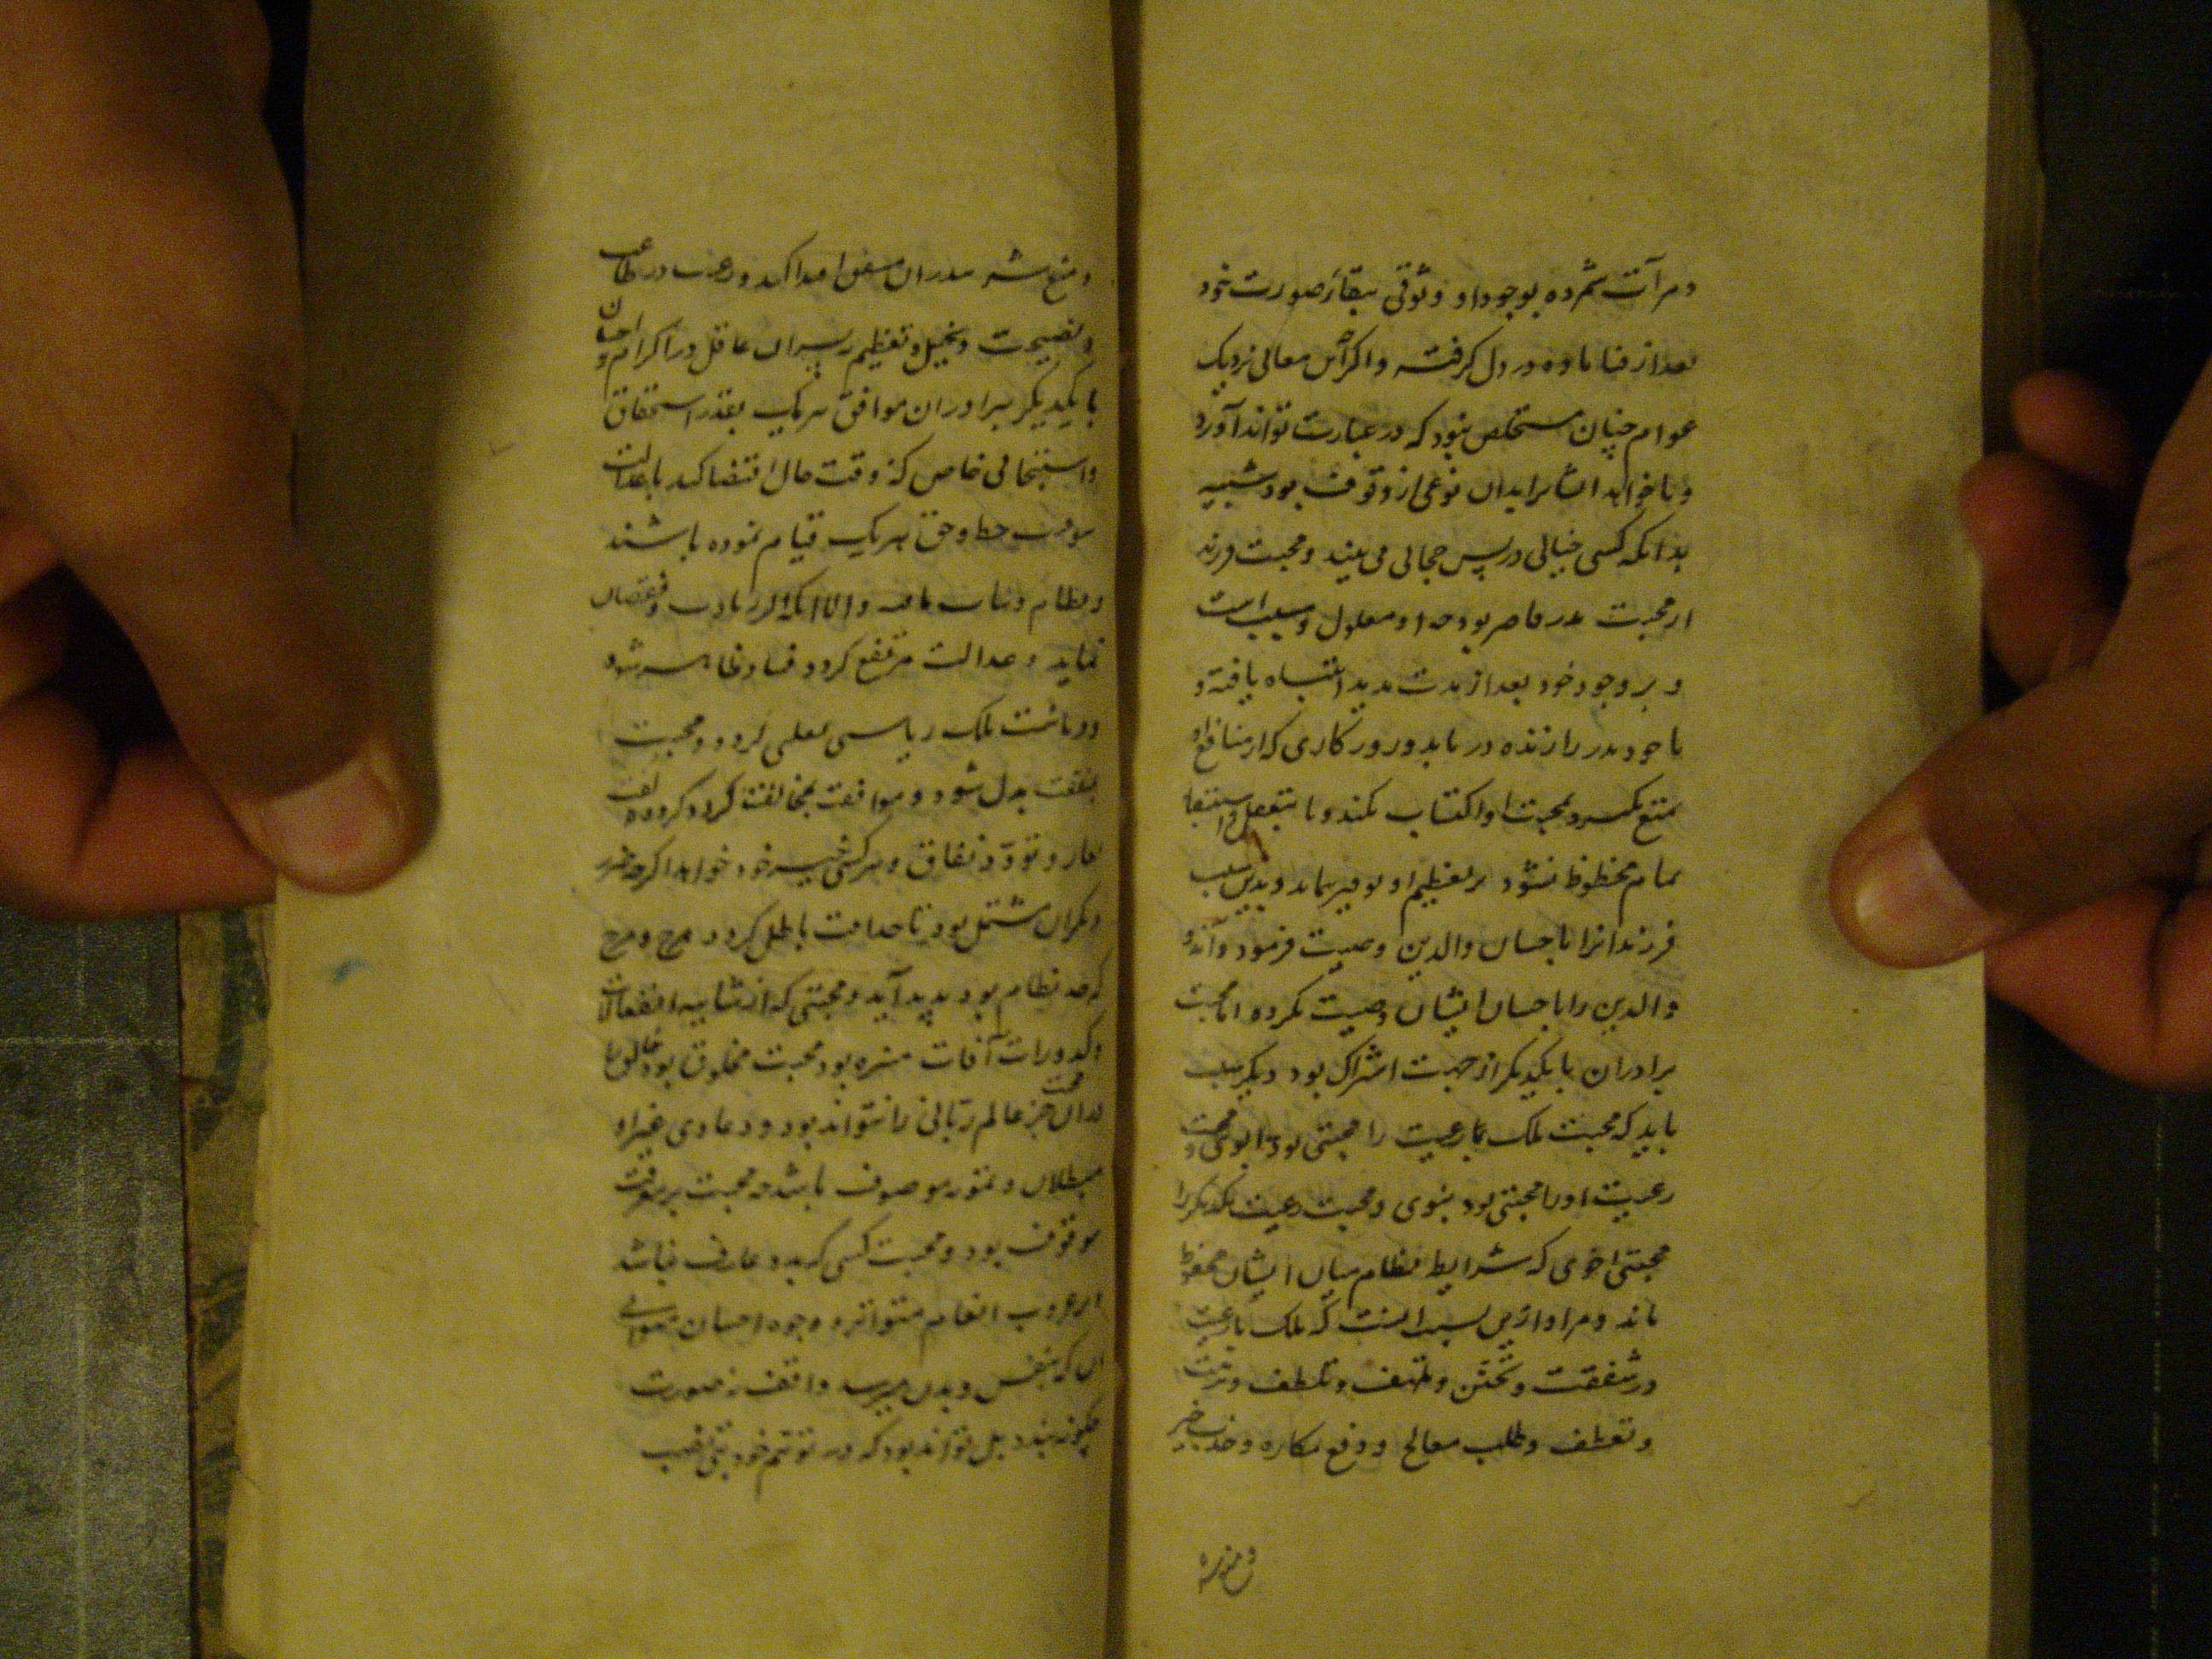 و مرآت شمرده بوجود او وثوقی ببقاء صورت خود
بعد از فنا ماده در دل گرفته و اگر این معانی نزدیک
عوام چنان مستخلص نبود که در عبارت توانند آورد
و ما خواهد ایشانرا بدان نوعی از وقوف بود شبیه
بدانکه کسی خیالی در پس حجابی می بیند و محبت فرزند
از محبت پدر قاصر بود چه او معلول و مسبب است
و بر وجود خود بعد از مدت مدید انتباه یافته و
تا خود پدر را زنده در نیابد و روزگاری که از منافع او
تمتع نگیرد محبت او اکتساب نکند و تا بتعقل و استبقا
تمام محظوظ نشود بر تعظیم او توفیر ننماید و بدین سبب
فرزندانرا باحسان والدین وصیت فرموده اند و
والدین را باحسان ایشان وصیت نکرده اما محبت
برادران با یکدیگر از جهت اشتراک بود دیگر سبب
باید که محبت ملک با رعیت را محبتی بود ابوی و محبت
رعیت او را محبتی بود بنوی و محبت رعیت یکدیگر را
محبتی اخوی که شرایط نظام میان ایشان محفوظ
ماند و مراد ازین سبب آنست که ملک با رعیت
در شفقت و تحنن و تلطف و تربیت
و تعطف و طلب مصالح و دفع مکاره و جذب خیر
و منع شر بپدران مشفق اقتدا کند و رعیت در طاعت
و نصیحت و تبجیل و تعظیم بپسران عاقل و در اکرام و احسان
با یکدیگر ببرادران موافق هر یک بقدر استحقاق
و استیجابی خاص که وقت حال اقتضا کند با عدالت
حظ و حق هر یک قیام نموده باشند
و نظام و ثبات یافته و الا اگر زیادت و نقصان
نماید و عدالت مرتفع گردد فساد ظاهر شود
و ریاست ملک ریاست گردد و محبت
بدل شود و موافقت مخالفت گردد
و تودد نفاق و هر کسی خیر خود خواهد اگر چه بر ضرر
دیگران مشتمل بود تا صداقت باطل گردد و هرج و مرج
که ضد نظام بود پدید آید و محبتی که از شایبه انفعالات
و کدورات آفات منزه بود محبت مخلوق بود خالق را
و آن محبت جز عالم ربانی را نتواند بود و دعاوی غیر او
ببطلان و موصوف باشد چه محبت بر معرفت
موقوف بود و محبت کسی که بدو عارف نباشد
و بر ضروب انعام متواتر و وجوه احسان متوالی
او که بنفس و بدن میرسد واقف نه صورت
چگونه بندد بل تواند بود که در توهم خود بتی نصب
و منع شر